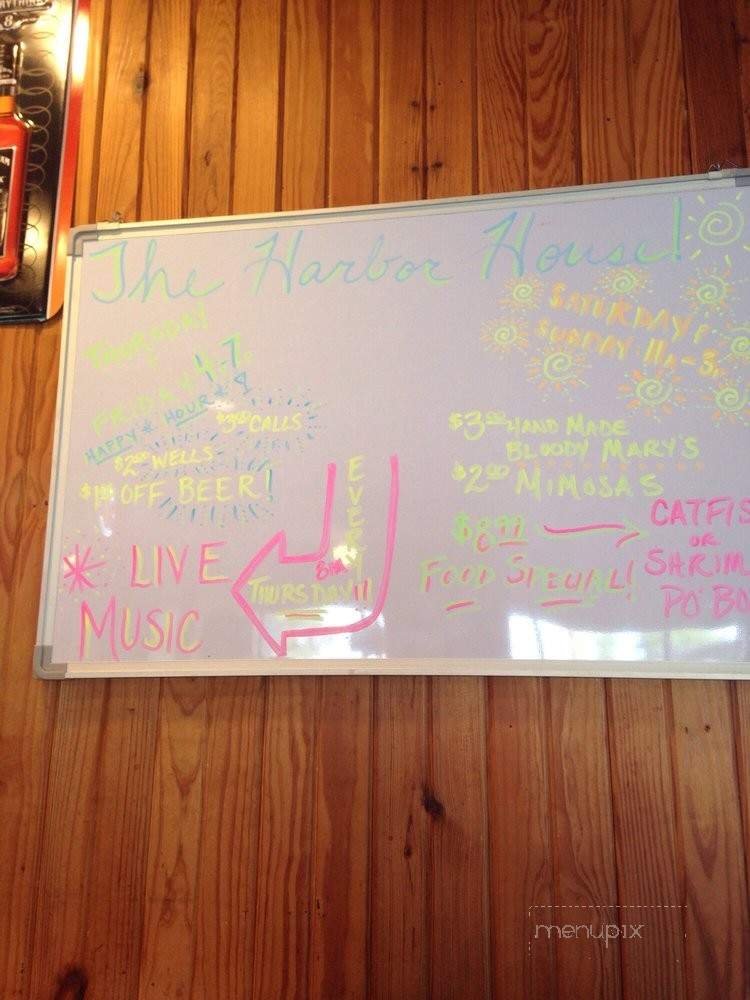 The Harbor House!
THURSDAY
FRIDAY 4-7
HAPPY HOUR
$3.00 CALLS
$2.00 WELLS
$1.00 OFF BEER!
* LIVE
MUSIC
EVERY
8PM
THURSDAY!!
SATURDAY
SUNDAY 11A-3P
$3.00 HAND MADE
BLOODY MARY'S
$2.00 MIMOSAS
FOOD SPECIAL!
CATFIS
OR
SHRIM
PO'BO
menupix